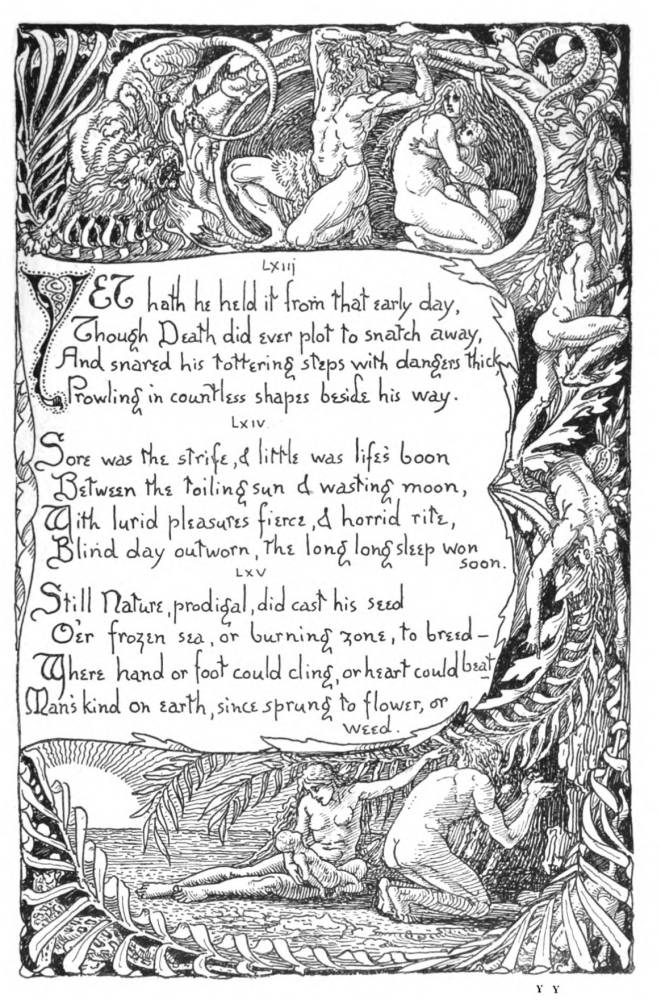 LXIIJ
YET hath he held it from that early day,
Though Death did ever plot to snatch away,
And snared his tottering steps with dangers thick
Prowling in countless shapes beside his way.
LXIV.
Sore was the strife, & little was life's boon
Between the toiling sun & wasting moon,
With lurid pleasures fierce, & horrid rite,
Blind day outworn, the long long sleep won
soon.
LXV
Still Nature, prodigal, did cast his seed
O'er frozen sea, or burning zone, to breed—
Where hand or foot could cling, or heart could beat
Man's kind on earth, since sprung to flower, or
weed.
Y Y